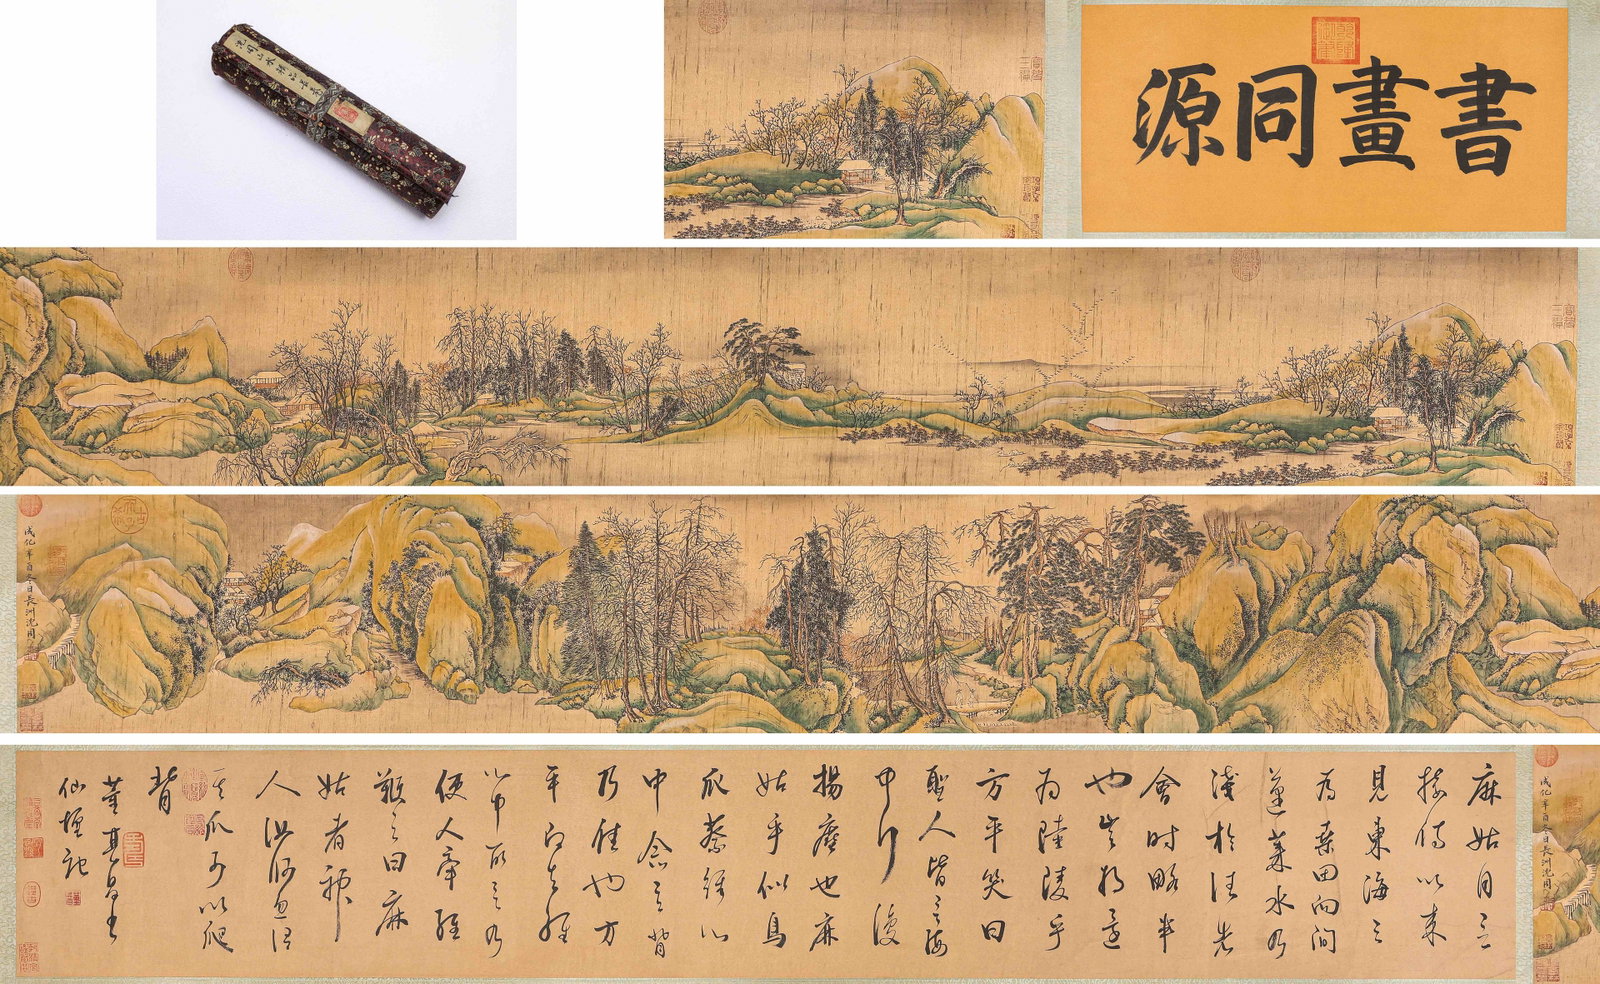 書畫同源
成化辛酉冬日長洲沈周
麻姑自言
接侍以來
見東海三
為桑田向間
蓬萊水乃
淺於往者
會時略半
也豈將還
為陸陵乎
方平笑曰
聖人皆言海
中行復
揚塵也麻
姑手似鳥
爪蔡經心
中念言背
乃佳也方
平已知經
心中所言乃
使人牽經
鞭之曰麻
姑者神
人汝何忽謂
其爪可以爬
背
董其昌書
仙壇記
成化辛酉冬日長洲沈周